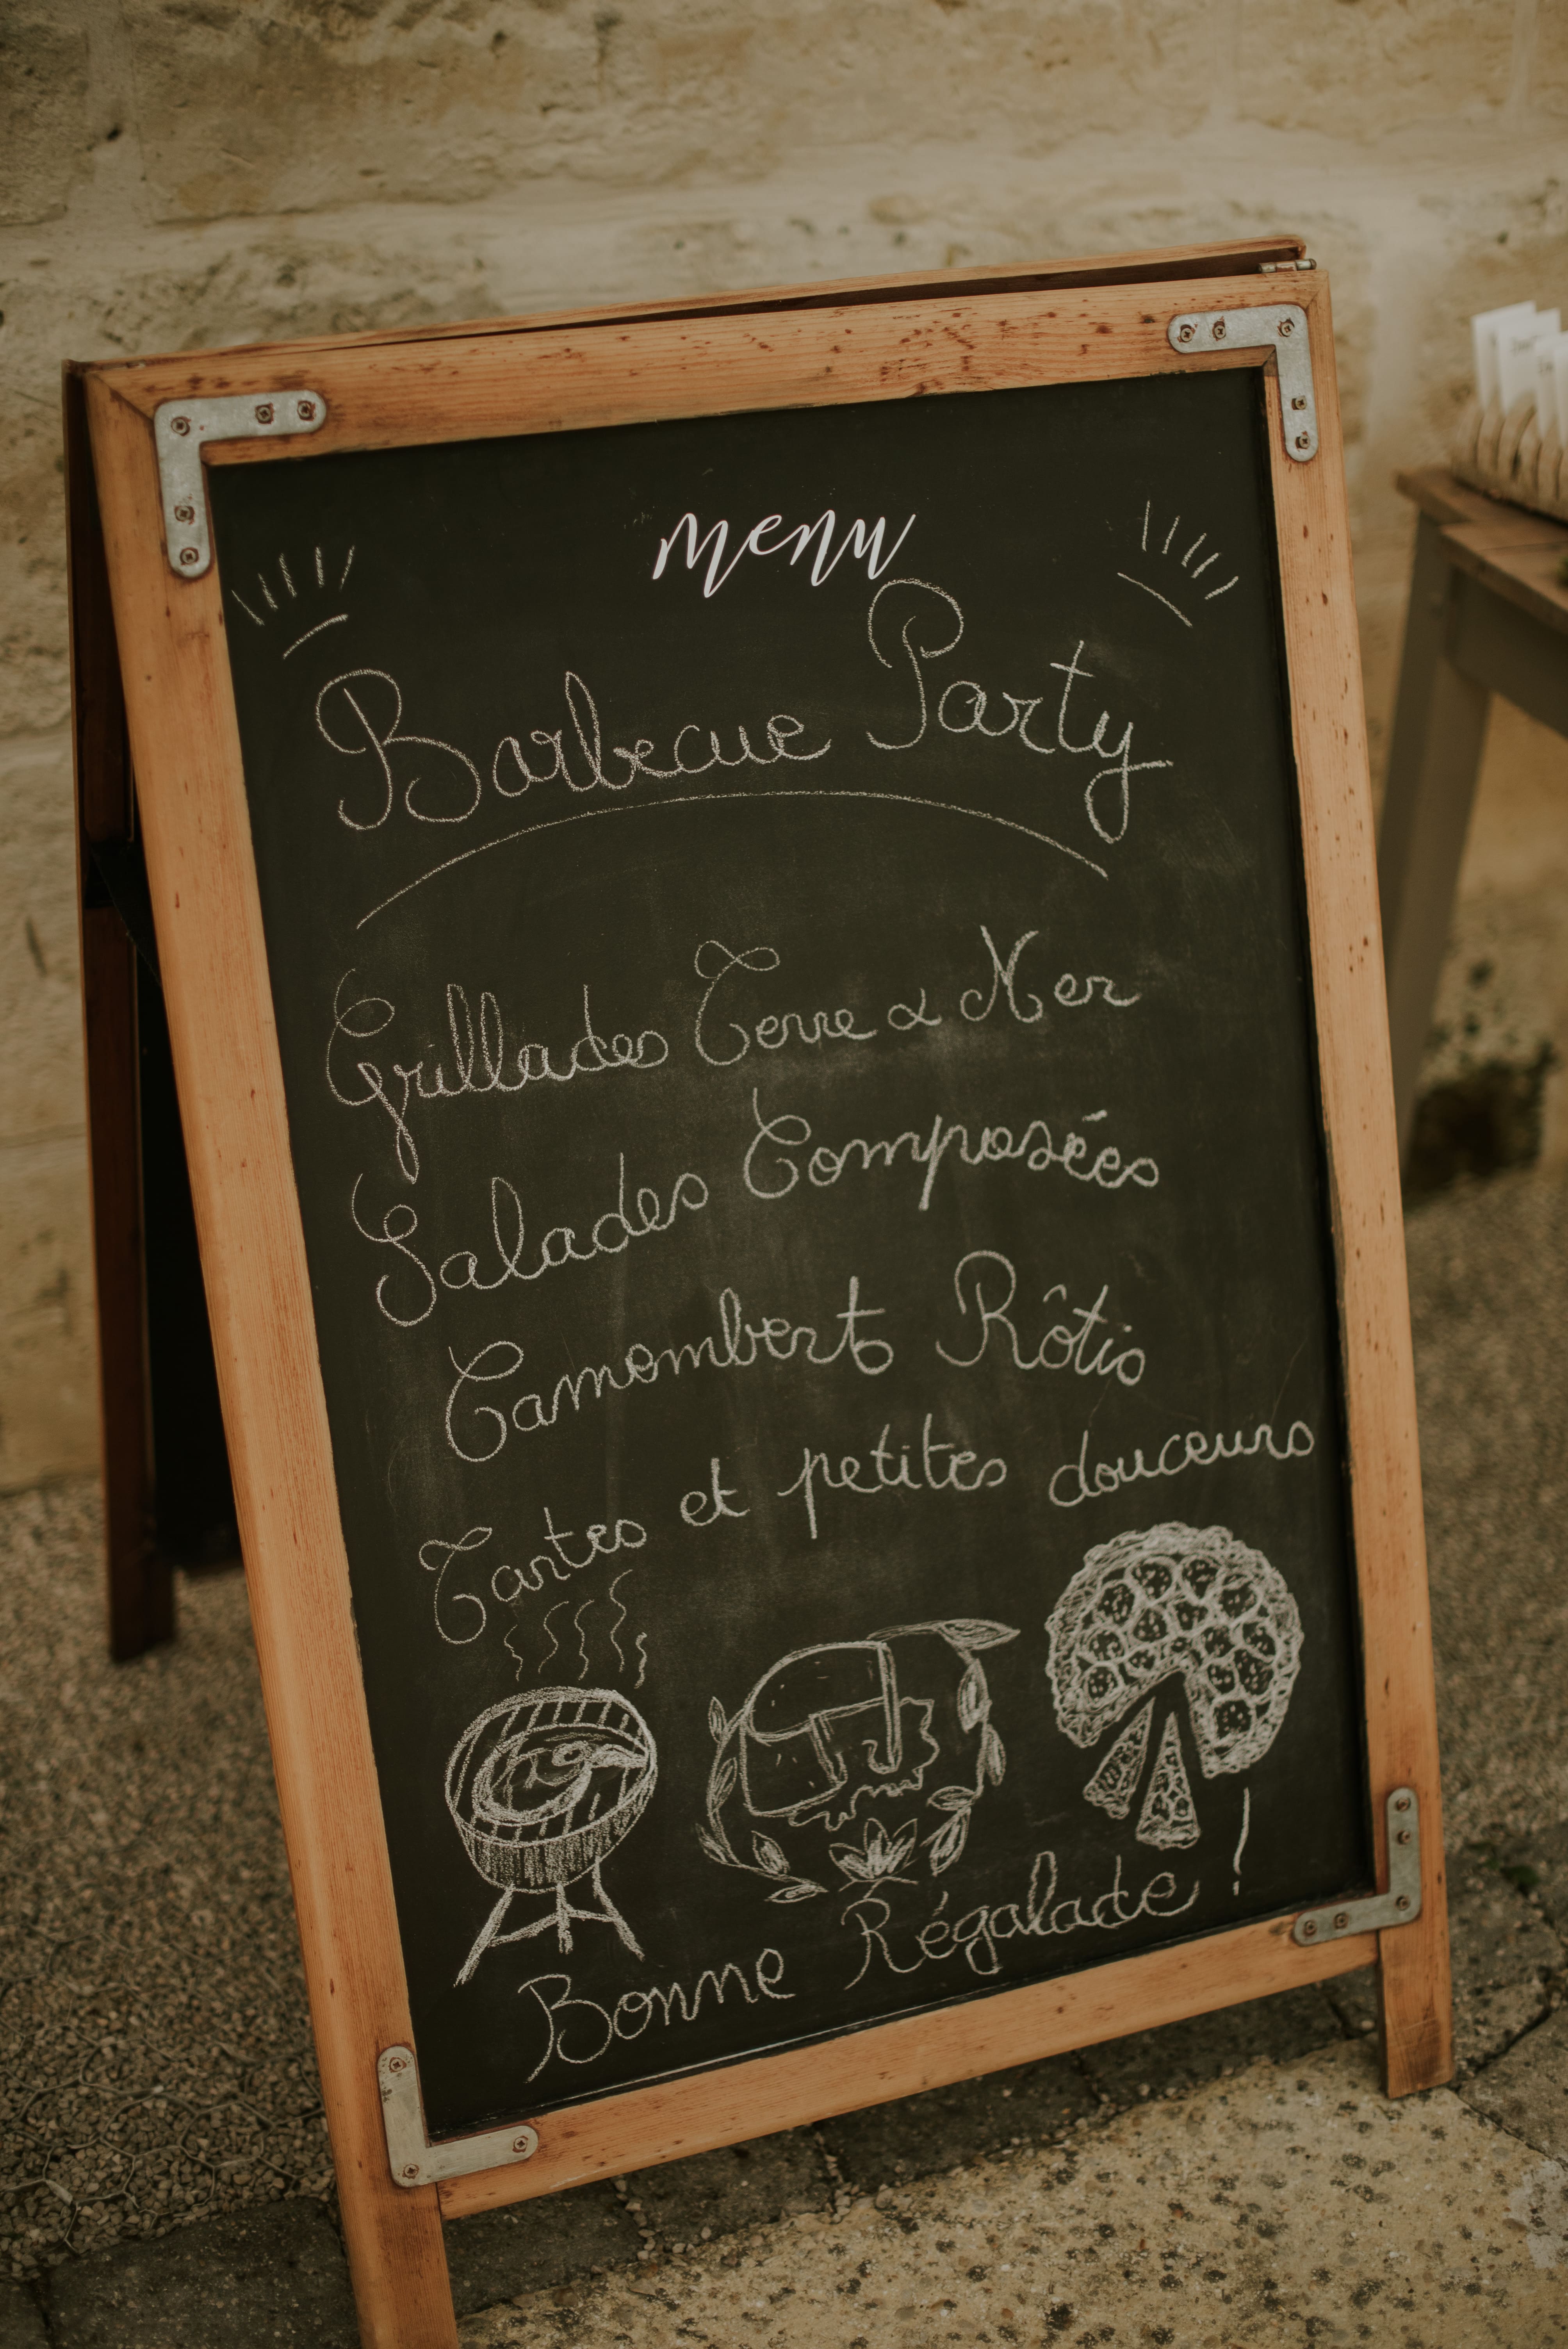 menu
Barbecue Party
Grillades Terre & Mer
Salades Composées
Camemberts Rôtis
Tartes et petites douceurs
Bonne Régalade !